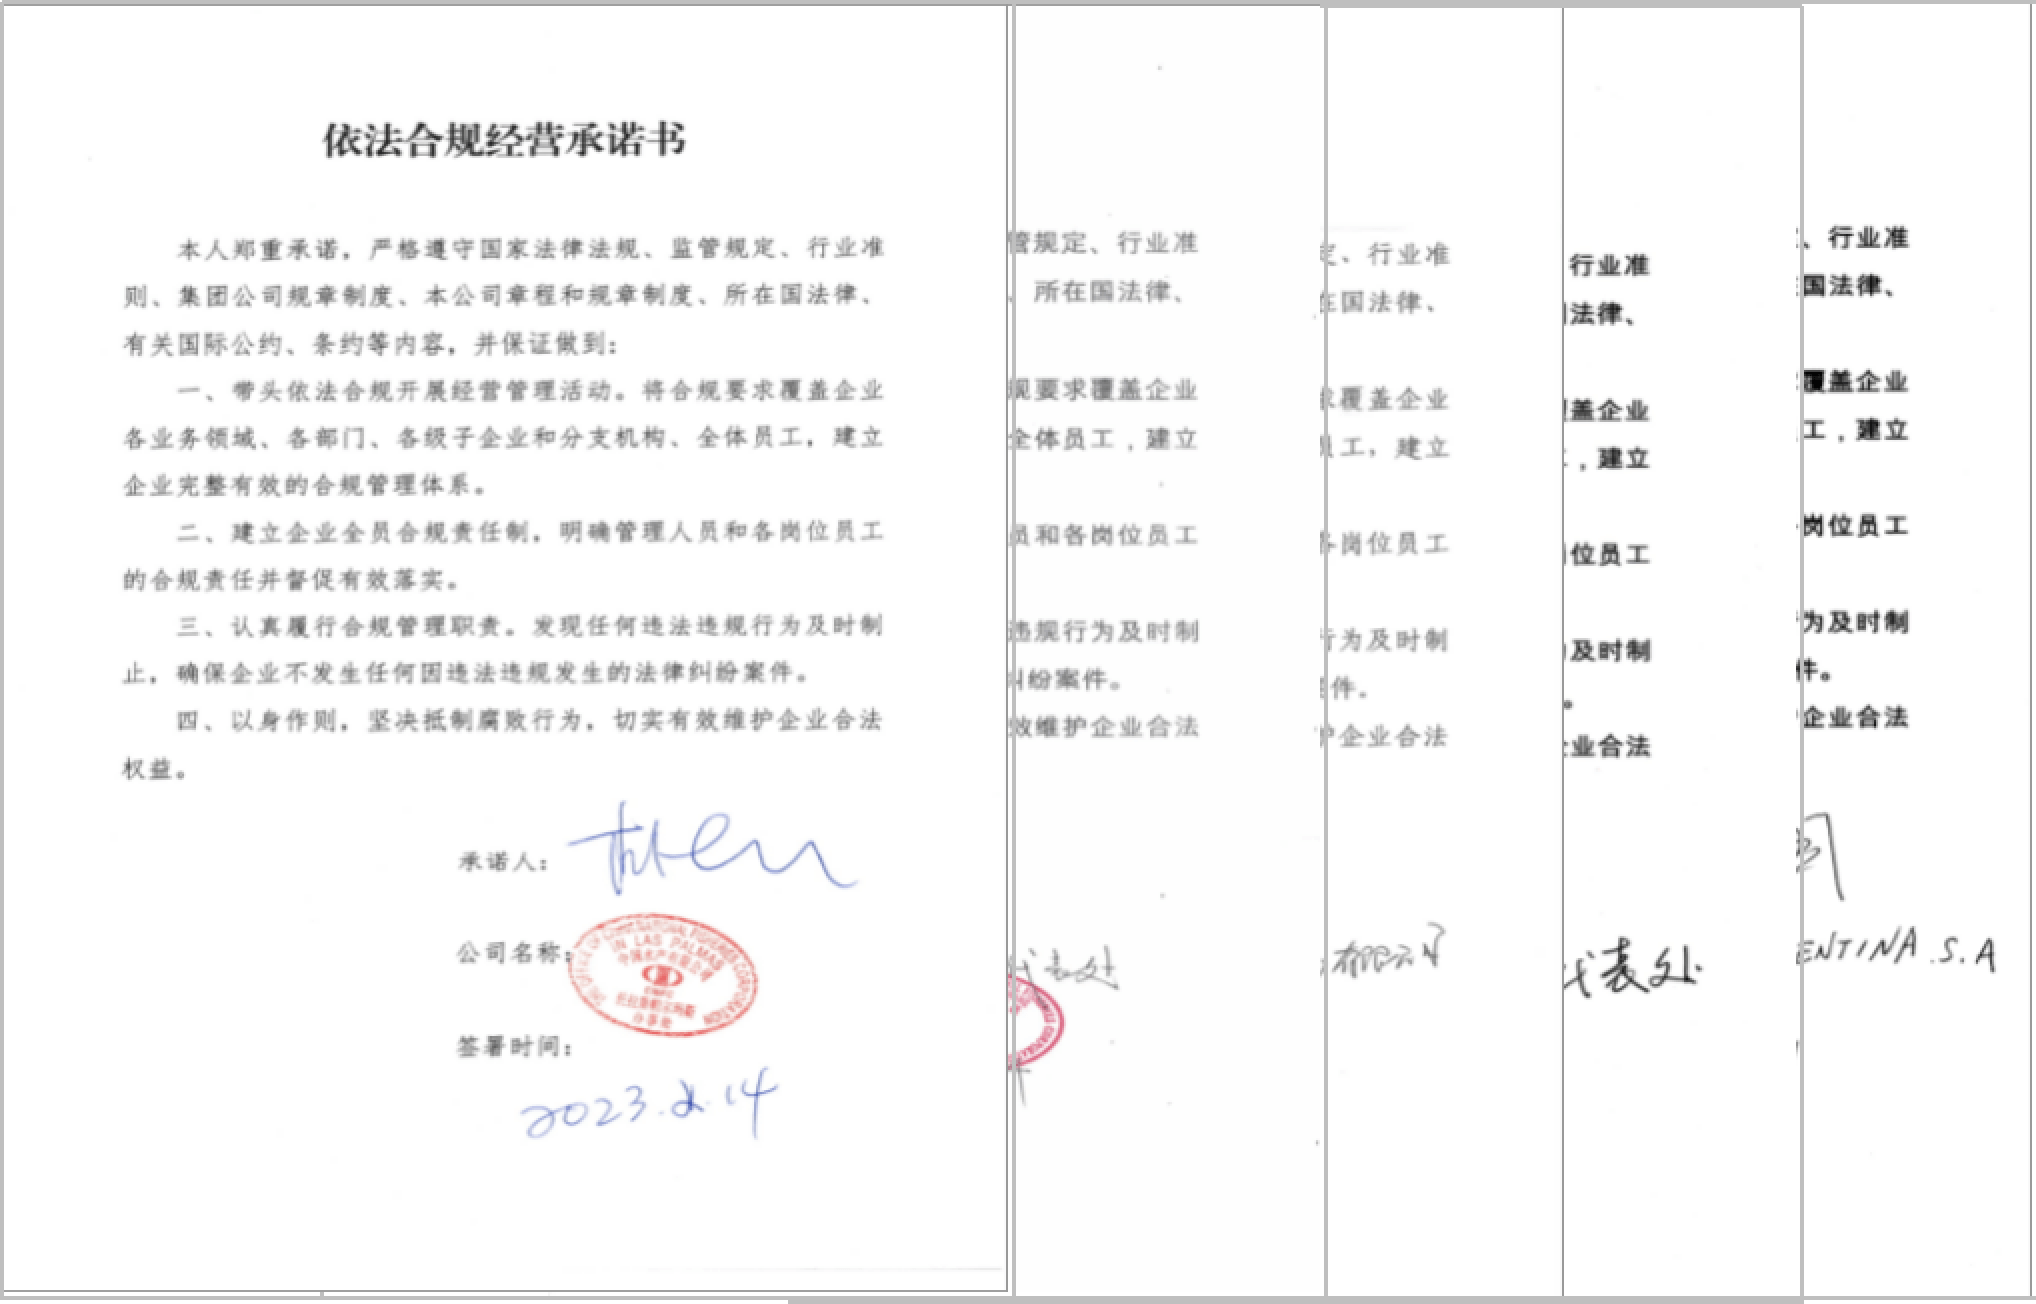 依法合规经营承诺书
本人郑重承诺，严格遵守国家法律法规、监管规定、行业准
则、集团公司规章制度、本公司章程和规章制度、所在国法律、
有关国际公约、条约等内容，并保证做到：
一、带头依法合规开展经营管理活动。将合规要求覆盖企业
各业务领域、各部门、各级子企业和分支机构、全体员工，建立
企业完整有效的合规管理体系。
二、建立企业全员合规责任制，明确管理人员和各岗位员工
的合规责任并督促有效落实。
三、认真履行合规管理职责。发现任何违法违规行为及时制
止，确保企业不发生任何因违法违规发生的法律纠纷案件。
四、以身作则，坚决抵制腐败行为，切实有效维护企业合法
权益。
承诺人：
公司名称：
IN LAS PALMAS
中国水产有限公司
办事处
签署时间：
2023.2.14
管规定、行业准
、所在国法律、
规要求覆盖企业
全体员工，建立
员和各岗位员工
违规行为及时制
纠纷案件。
效维护企业合法
代表处
定、行业准
在国法律、
求覆盖企业
员工，建立
各岗位员工
行为及时制
案件。
护企业合法
有限公司
行业准
法律、
盖企业
，建立
位员工
及时制
。
业合法
代表处
、行业准
国法律、
覆盖企业
工，建立
岗位员工
为及时制
件。
企业合法
ENTINA.S.A